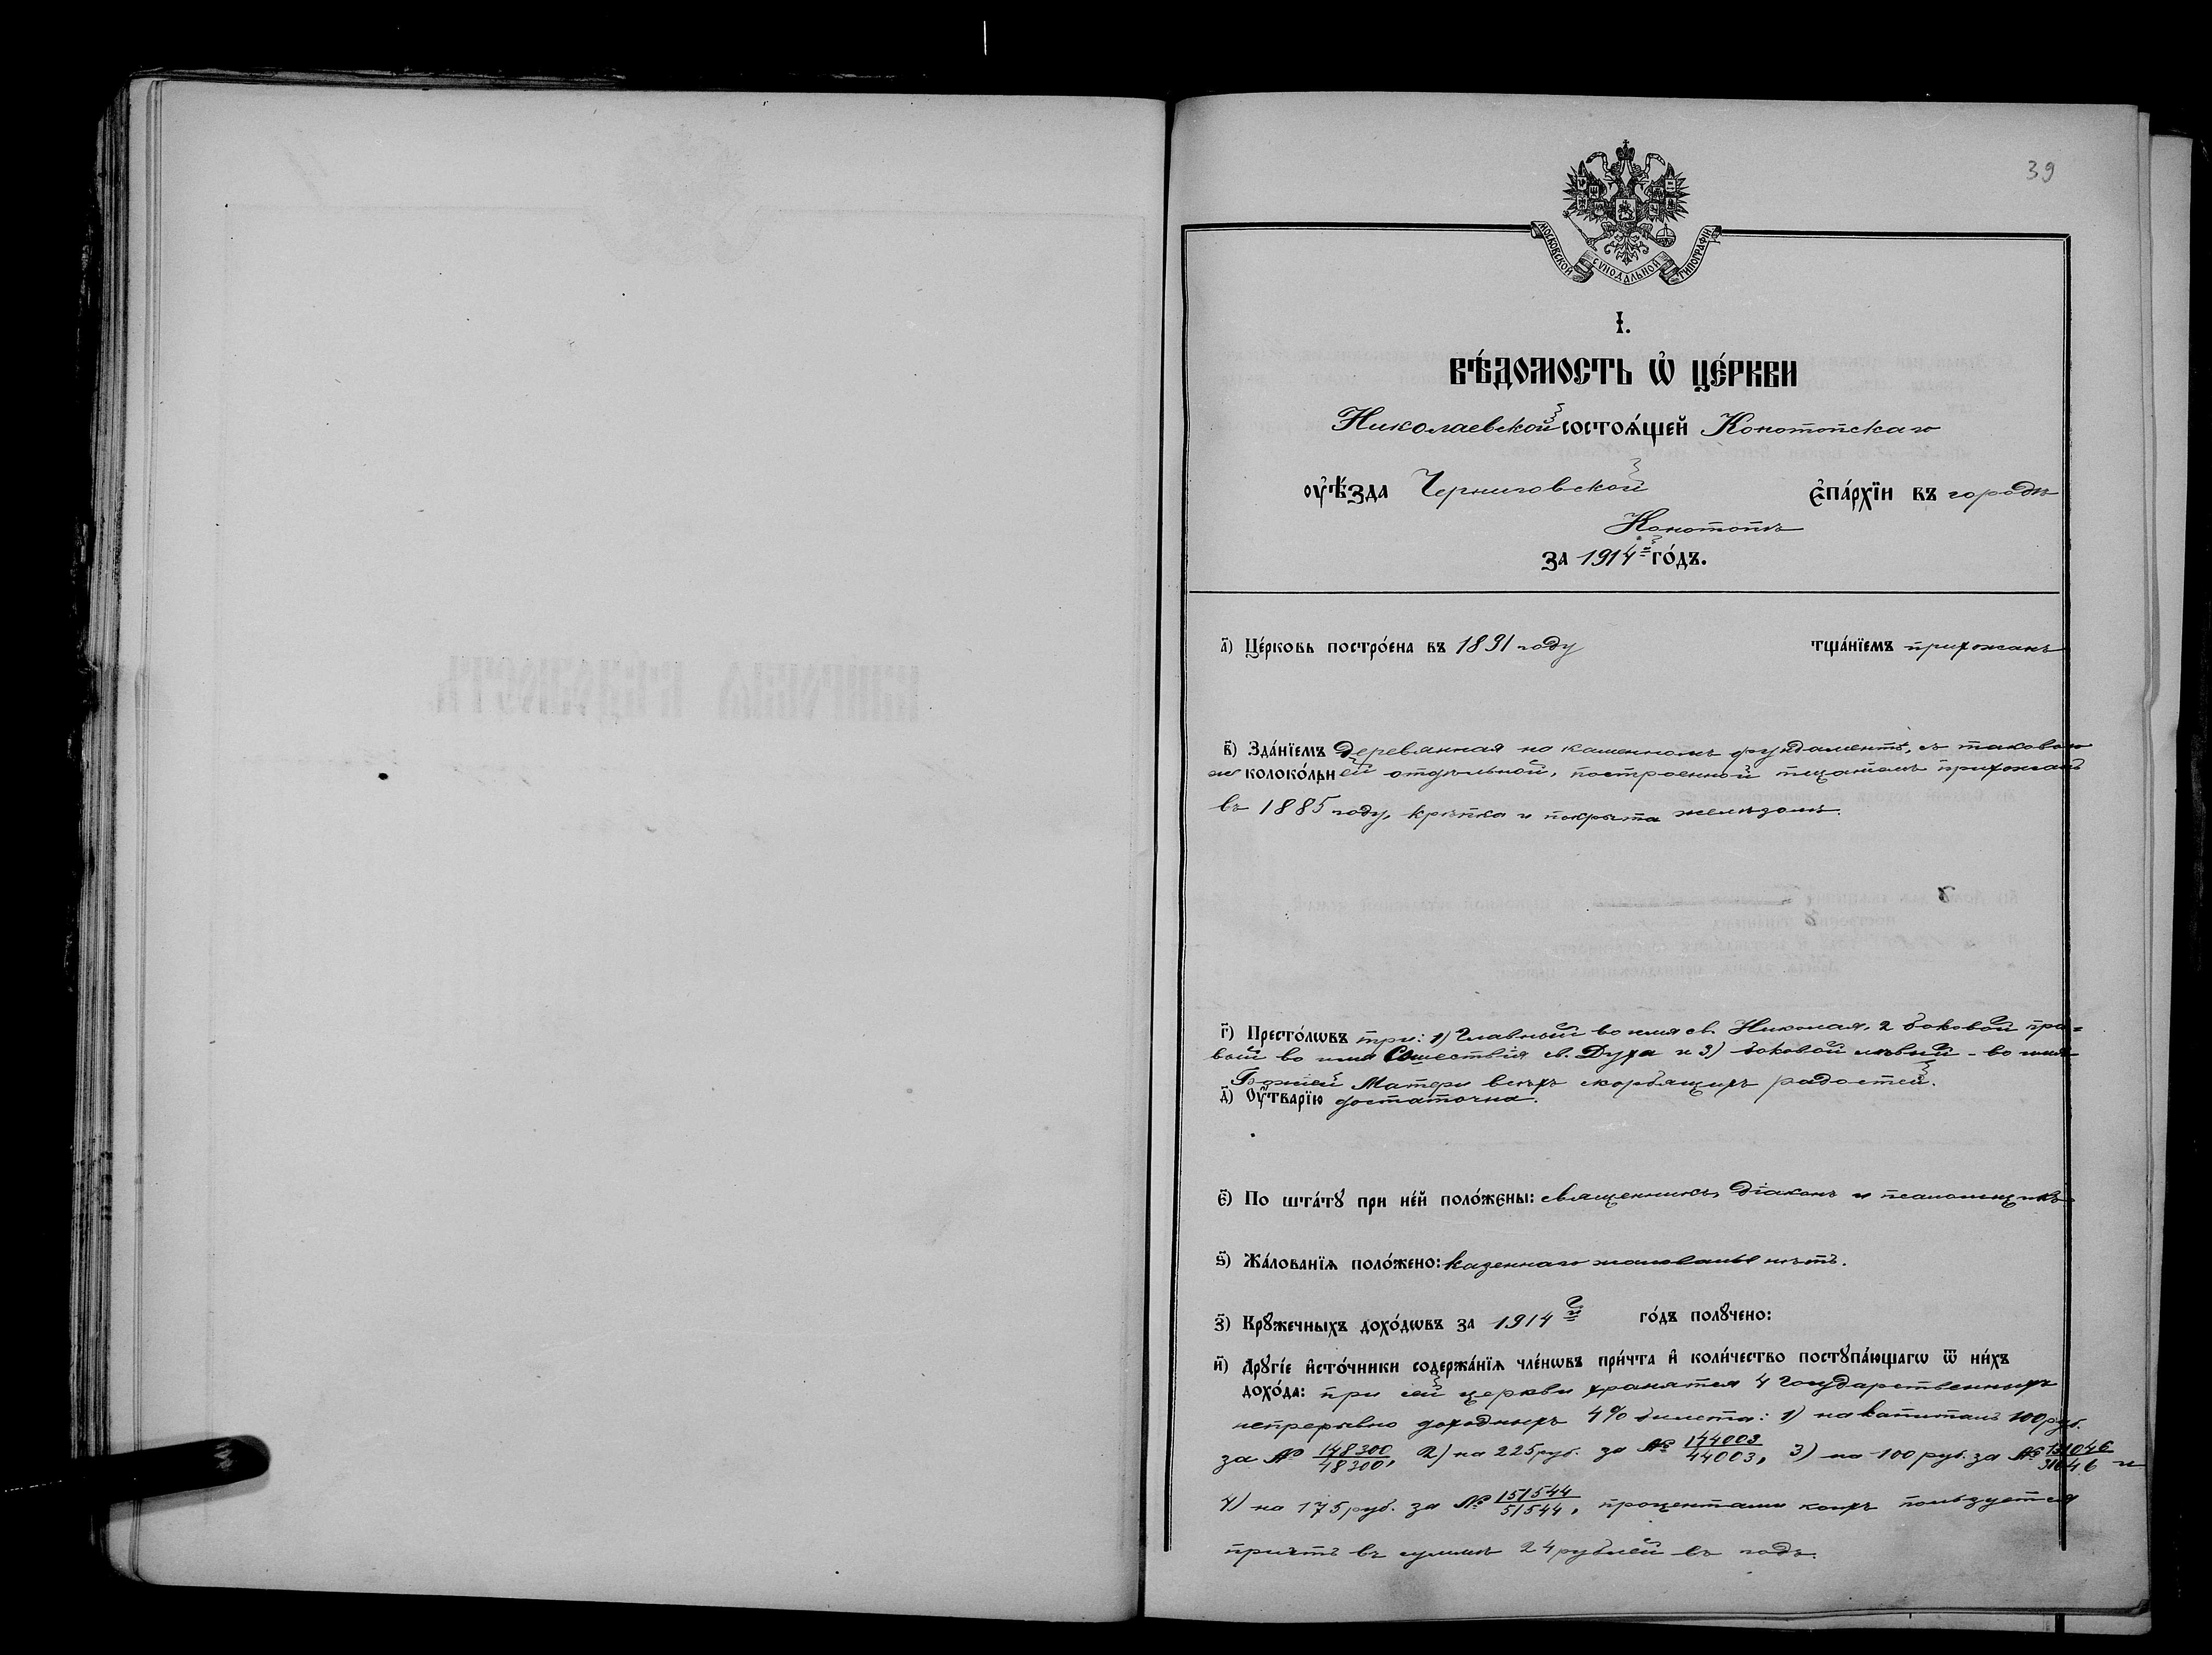 39
МОСКОВСКОЙ СѴНОДАЛЬНОЙ ТИПОГРАФІИ
І.
ВѢ́ДОМОСТЬ Ѡ҆ ЦЕ́РКВИ
Николаевской состоѧ́щей Конотопскаго
ᲂу҆ѣ́зда Черниговской є҆па́рхїи въ городѣ
Конотопѣ
за 1914й го́дъ.
а҃) Це́рковь постро́ена въ 1891 году тща́нїемъ прихожанъ
в҃) Зда́нїемъ Деревянная на каменномъ фундаментѣ, съ таковою
же колоко́льней отдѣльной, построенной тщаніемъ прихожанъ
въ 1885 году, крѣпка и покрыта желѣзомъ.
г҃) Престо́лѡвъ три: 1) Главный во имя св. Николая, 2 боковой пра=
вый во имя Сошествія св. Духа и 3) боковой лѣвый - во имя
Божіей Матери всѣхъ скорбящихъ радостей.
д҃) Оу҆́тварїю достаточна.
є҃) По шта́тꙋ при не́й поло́жены: священникъ, діаконъ и псаломщикъ
ѕ҃) Жа́лованїѧ поло́жено: казеннаго жалованья нѣтъ.
з҃) Крꙋжечныхъ дохо́дѡвъ за 1914й го́дъ полꙋчено:
и҃) Дрꙋгі́е и҆сто́чники содержа́нїѧ чле́нѡвъ при́чта и҆ коли́чество постꙋпа́ющагѡ ѿ ни́хъ
дохо́да: при сей церкви хранятся 4 Государственныхъ
непрерывно доходныхъ 4% билета: 1) на капиталъ 100 руб.
за № 148300/48300, 2) на 225 руб. за № 144003/44003, 3) на 100 руб. за № 131046/31046 и
4) на 175 руб. за № 151544/51544, процентами коихъ пользуется
причтъ въ суммѣ 24 рублей въ годъ.